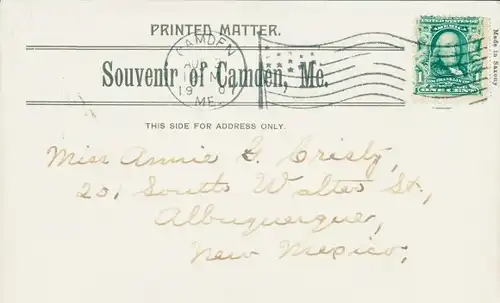 PRINTED MATTER.
CAMDEN
AUG
19 07
ME.
Souvenir of Camden, Me.
UNITED STATES OF AMERICA
FRANKLIN
1 1
ONE CENT
Made in Saxony
THIS SIDE FOR ADDRESS ONLY.
Miss Annie G. Cristy,
201 South Walter St,
Albuquerque,
New Mexico,